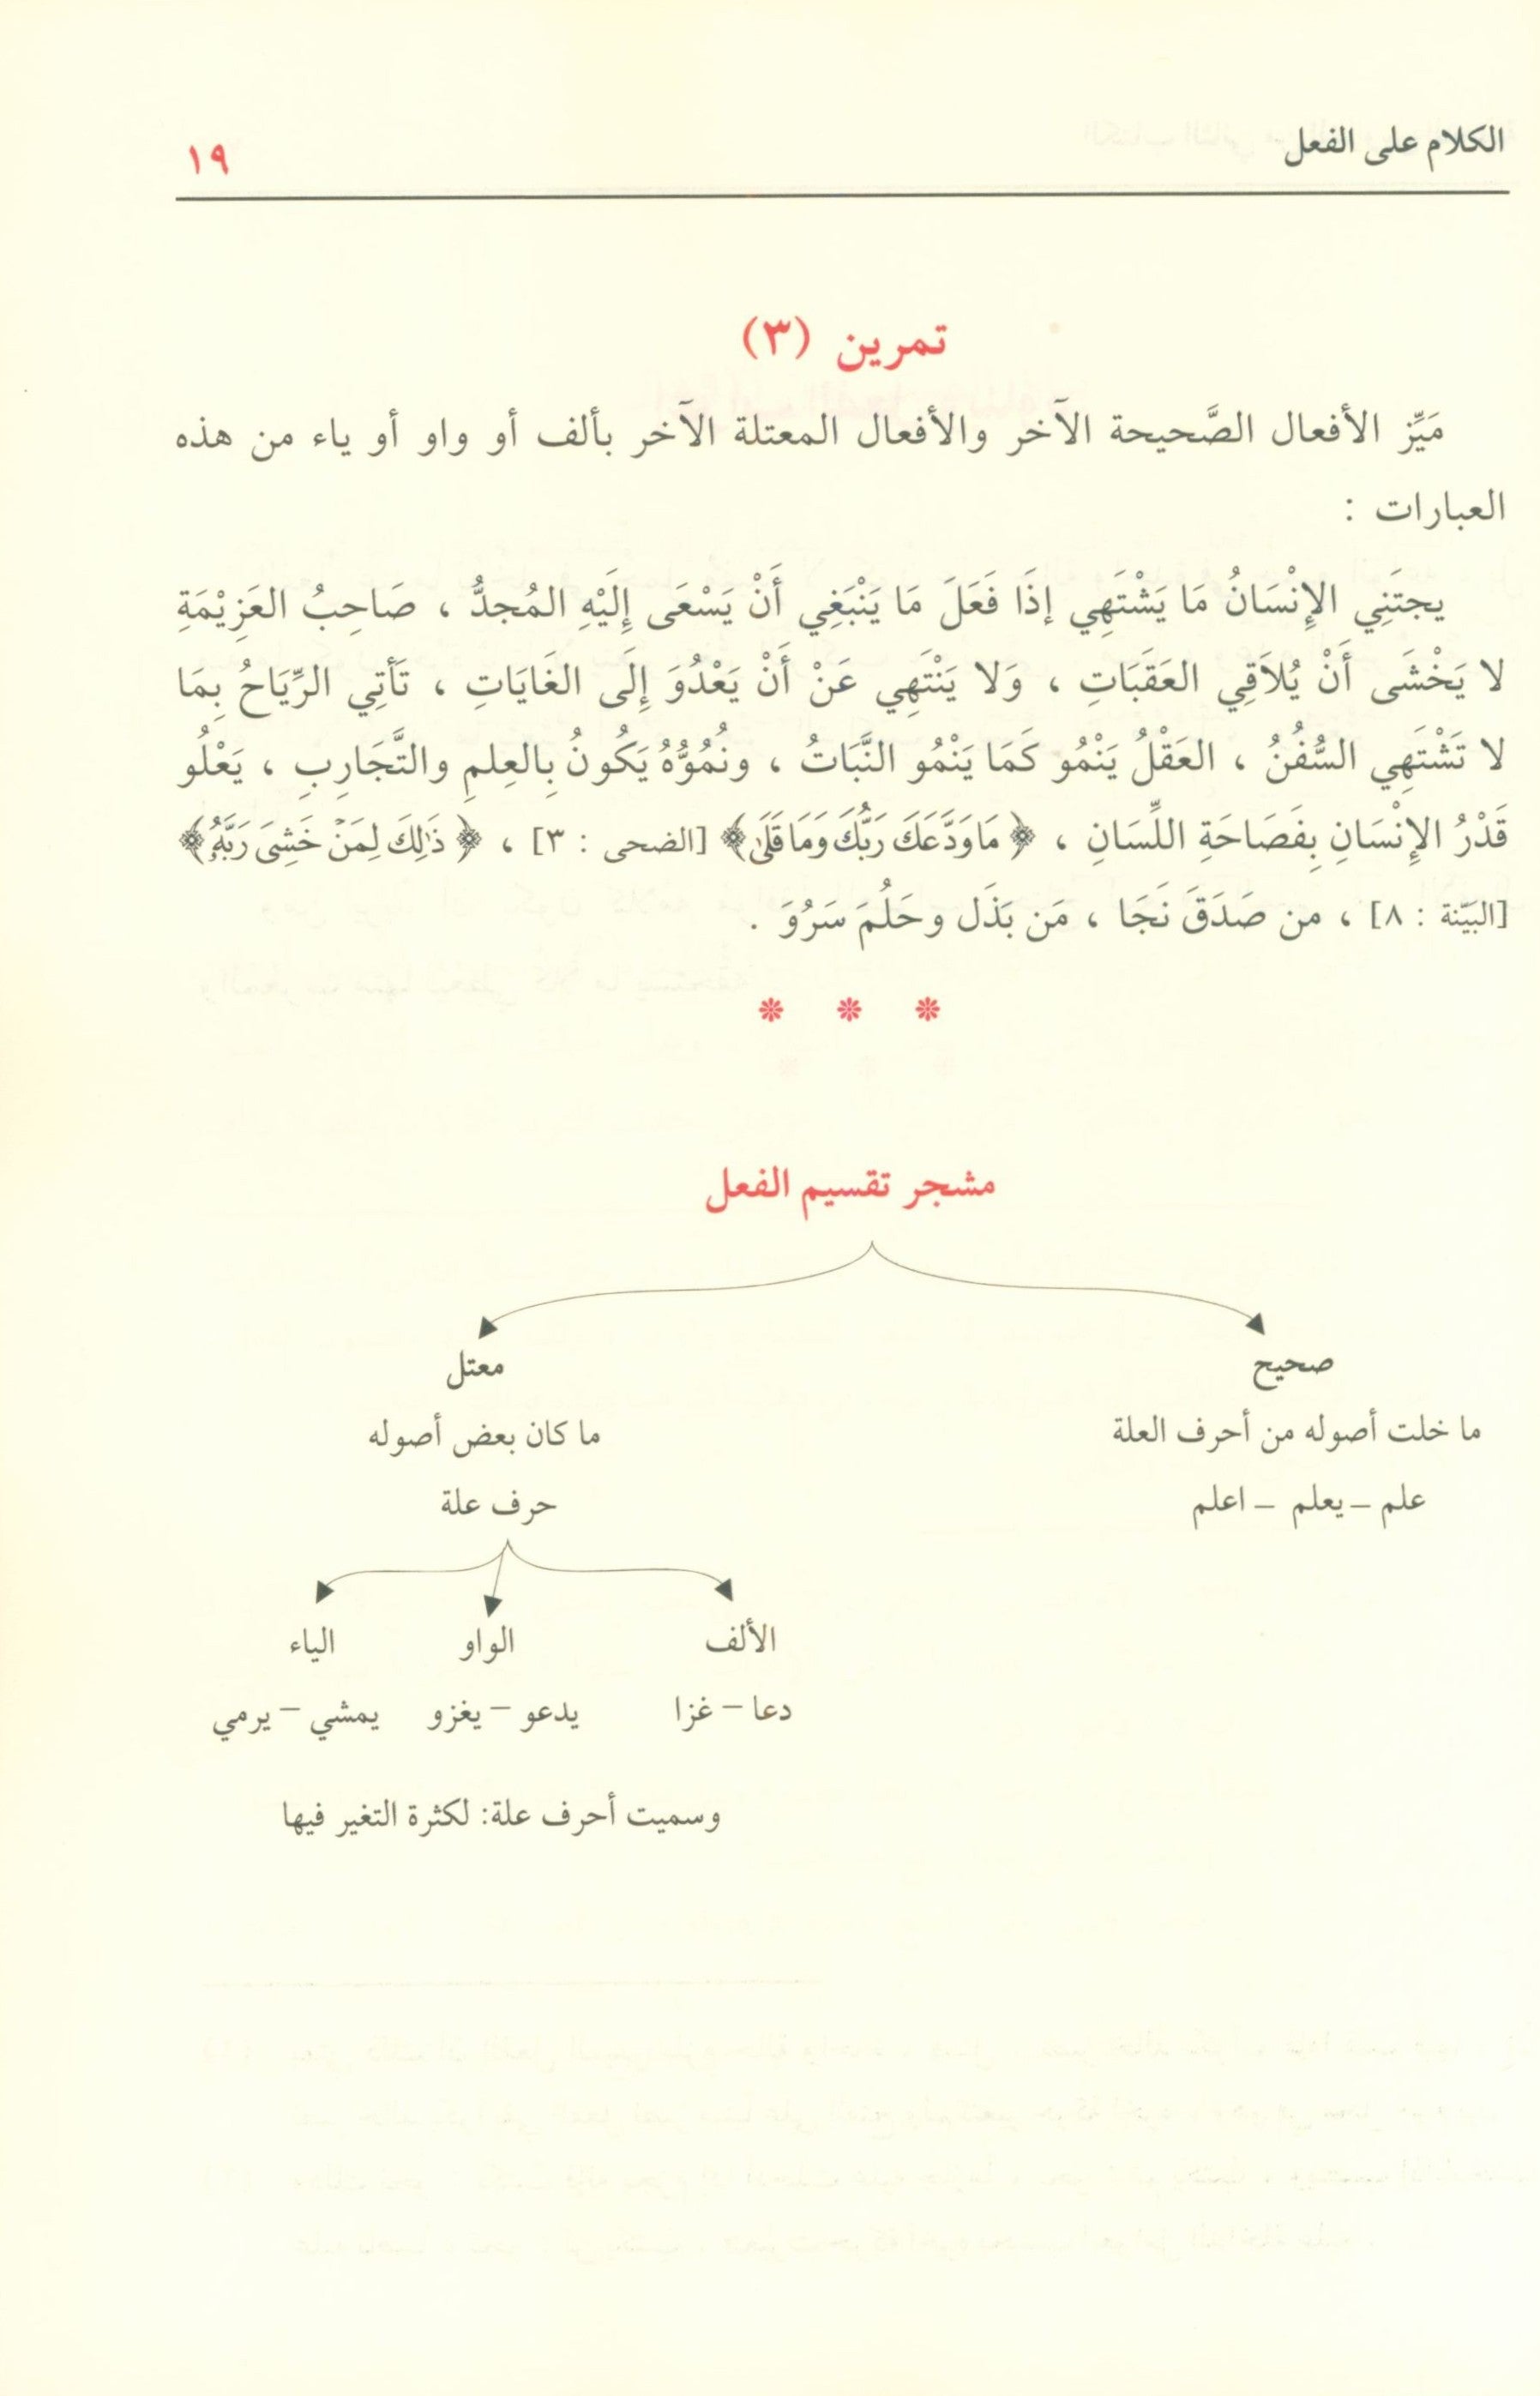 الكلام على الفعل
١٩
تمرين (٣)
مَيِّز الأفعال الصَّحيحة الآخر والأفعال المعتلة الآخر بألف أو واو أو ياء من هذه
العبارات :
يجتَنِي الإِنْسَانُ مَا يَشْتَهِي إذَا فَعَلَ مَا يَنْبَغِي أَنْ يَسْعَى إِلَيْهِ المُجدُّ ، صَاحِبُ العَزِيْمَةِ
لا يَخْشَى أَنْ يُلاَقِي العَقَبَاتِ ، وَلا يَنْتَهِي عَنْ أَنْ يَعْدُوَ إِلَى الغَايَاتِ ، تَأتِي الرِّيَاحُ بِمَا
لا تَشْتَهِي السُّفُنُ ، العَقْلُ يَنْمُو كَمَا يَنْمُو النَّبَاتُ ، ونُمُوُّهُ يَكُونُ بِالعِلمِ والتَّجَارِبِ ، يَعْلُو
قَدْرُ الإِنْسَانِ بِفَصَاحَةِ اللِّسَانِ ، ﴿مَا وَدَّعَكَ رَبُّكَ وَمَا قَلَىٰ﴾ [الضحى : ٣] ، ﴿ذَٰلِكَ لِمَنْ خَشِىَ رَبَّهُۥ﴾
[البَيّنة : ٨] ، من صَدَقَ نَجَا ، مَن بَذَل وحَلُمَ سَرُوَ .
* * *
مشجر تقسيم الفعل
صحيح
ما خلت أصوله من أحرف العلة
علم – يعلم – اعلم
معتل
ما كان بعض أصوله
حرف علة
الألف
دعا – غزا
الواو
يدعو – يغزو
الياء
يمشي – يرمي
وسميت أحرف علة: لكثرة التغير فيها